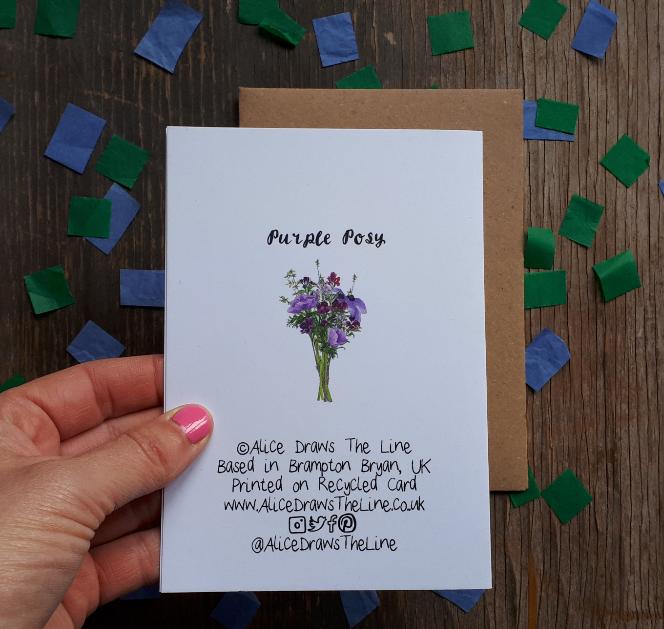 Purple Posy
©Alice Draws The Line
Based in Brampton Bryan, UK
Printed on Recycled Card
www.AliceDrawsTheLine.co.uk
@AliceDrawsTheLine